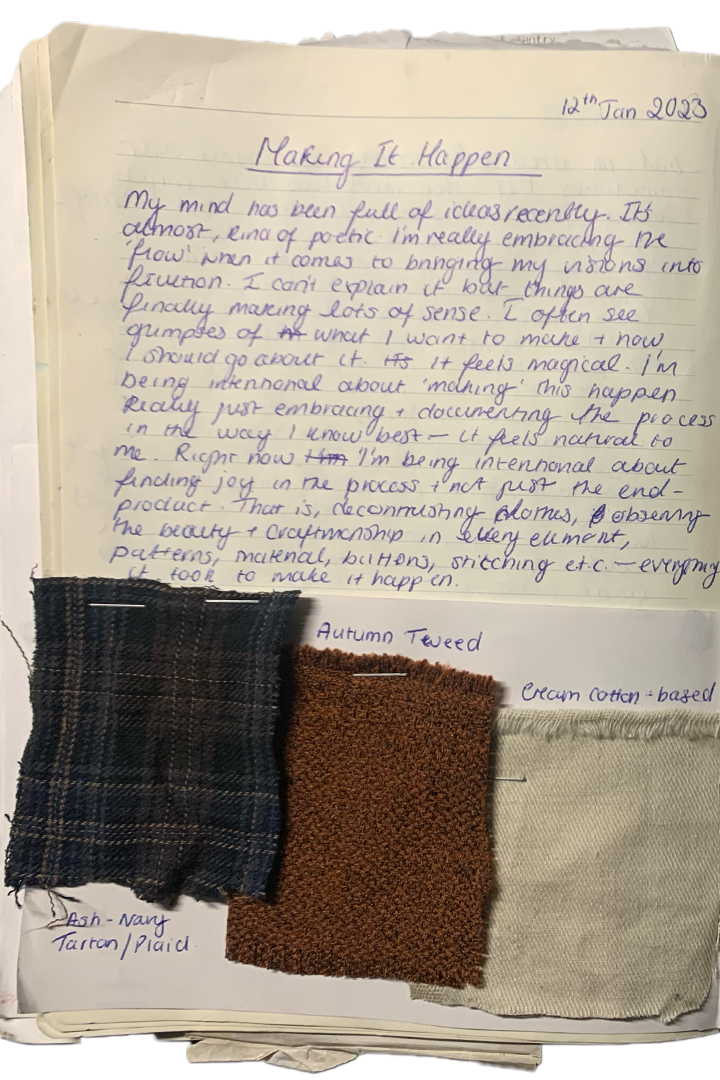 12th Jan 2023
Making It Happen
My mind has been full of ideas recently. It's
almost, kind of poetic. I'm really embracing the
'flow' when it comes to bringing my visions into
fruition. I can't explain it but things are
finally making lots of sense. I often see
glimpses of what I want to make + how
I should go about it. It's it feels magical. I'm
being intentional about 'making' this happen
Really just embracing + documenting the process
in the way I know best — it feels natural to
me. Right now I'm being intentional about
finding joy in the process + not just the end-
product. That is, deconstructing clothes, observing
the beauty + craftmanship in every element,
patterns, material, buttons, stitching etc. — everything
it took to make it happen.
Autumn Tweed
Cream cotton-based
Ash-Navy
Tartan/Plaid